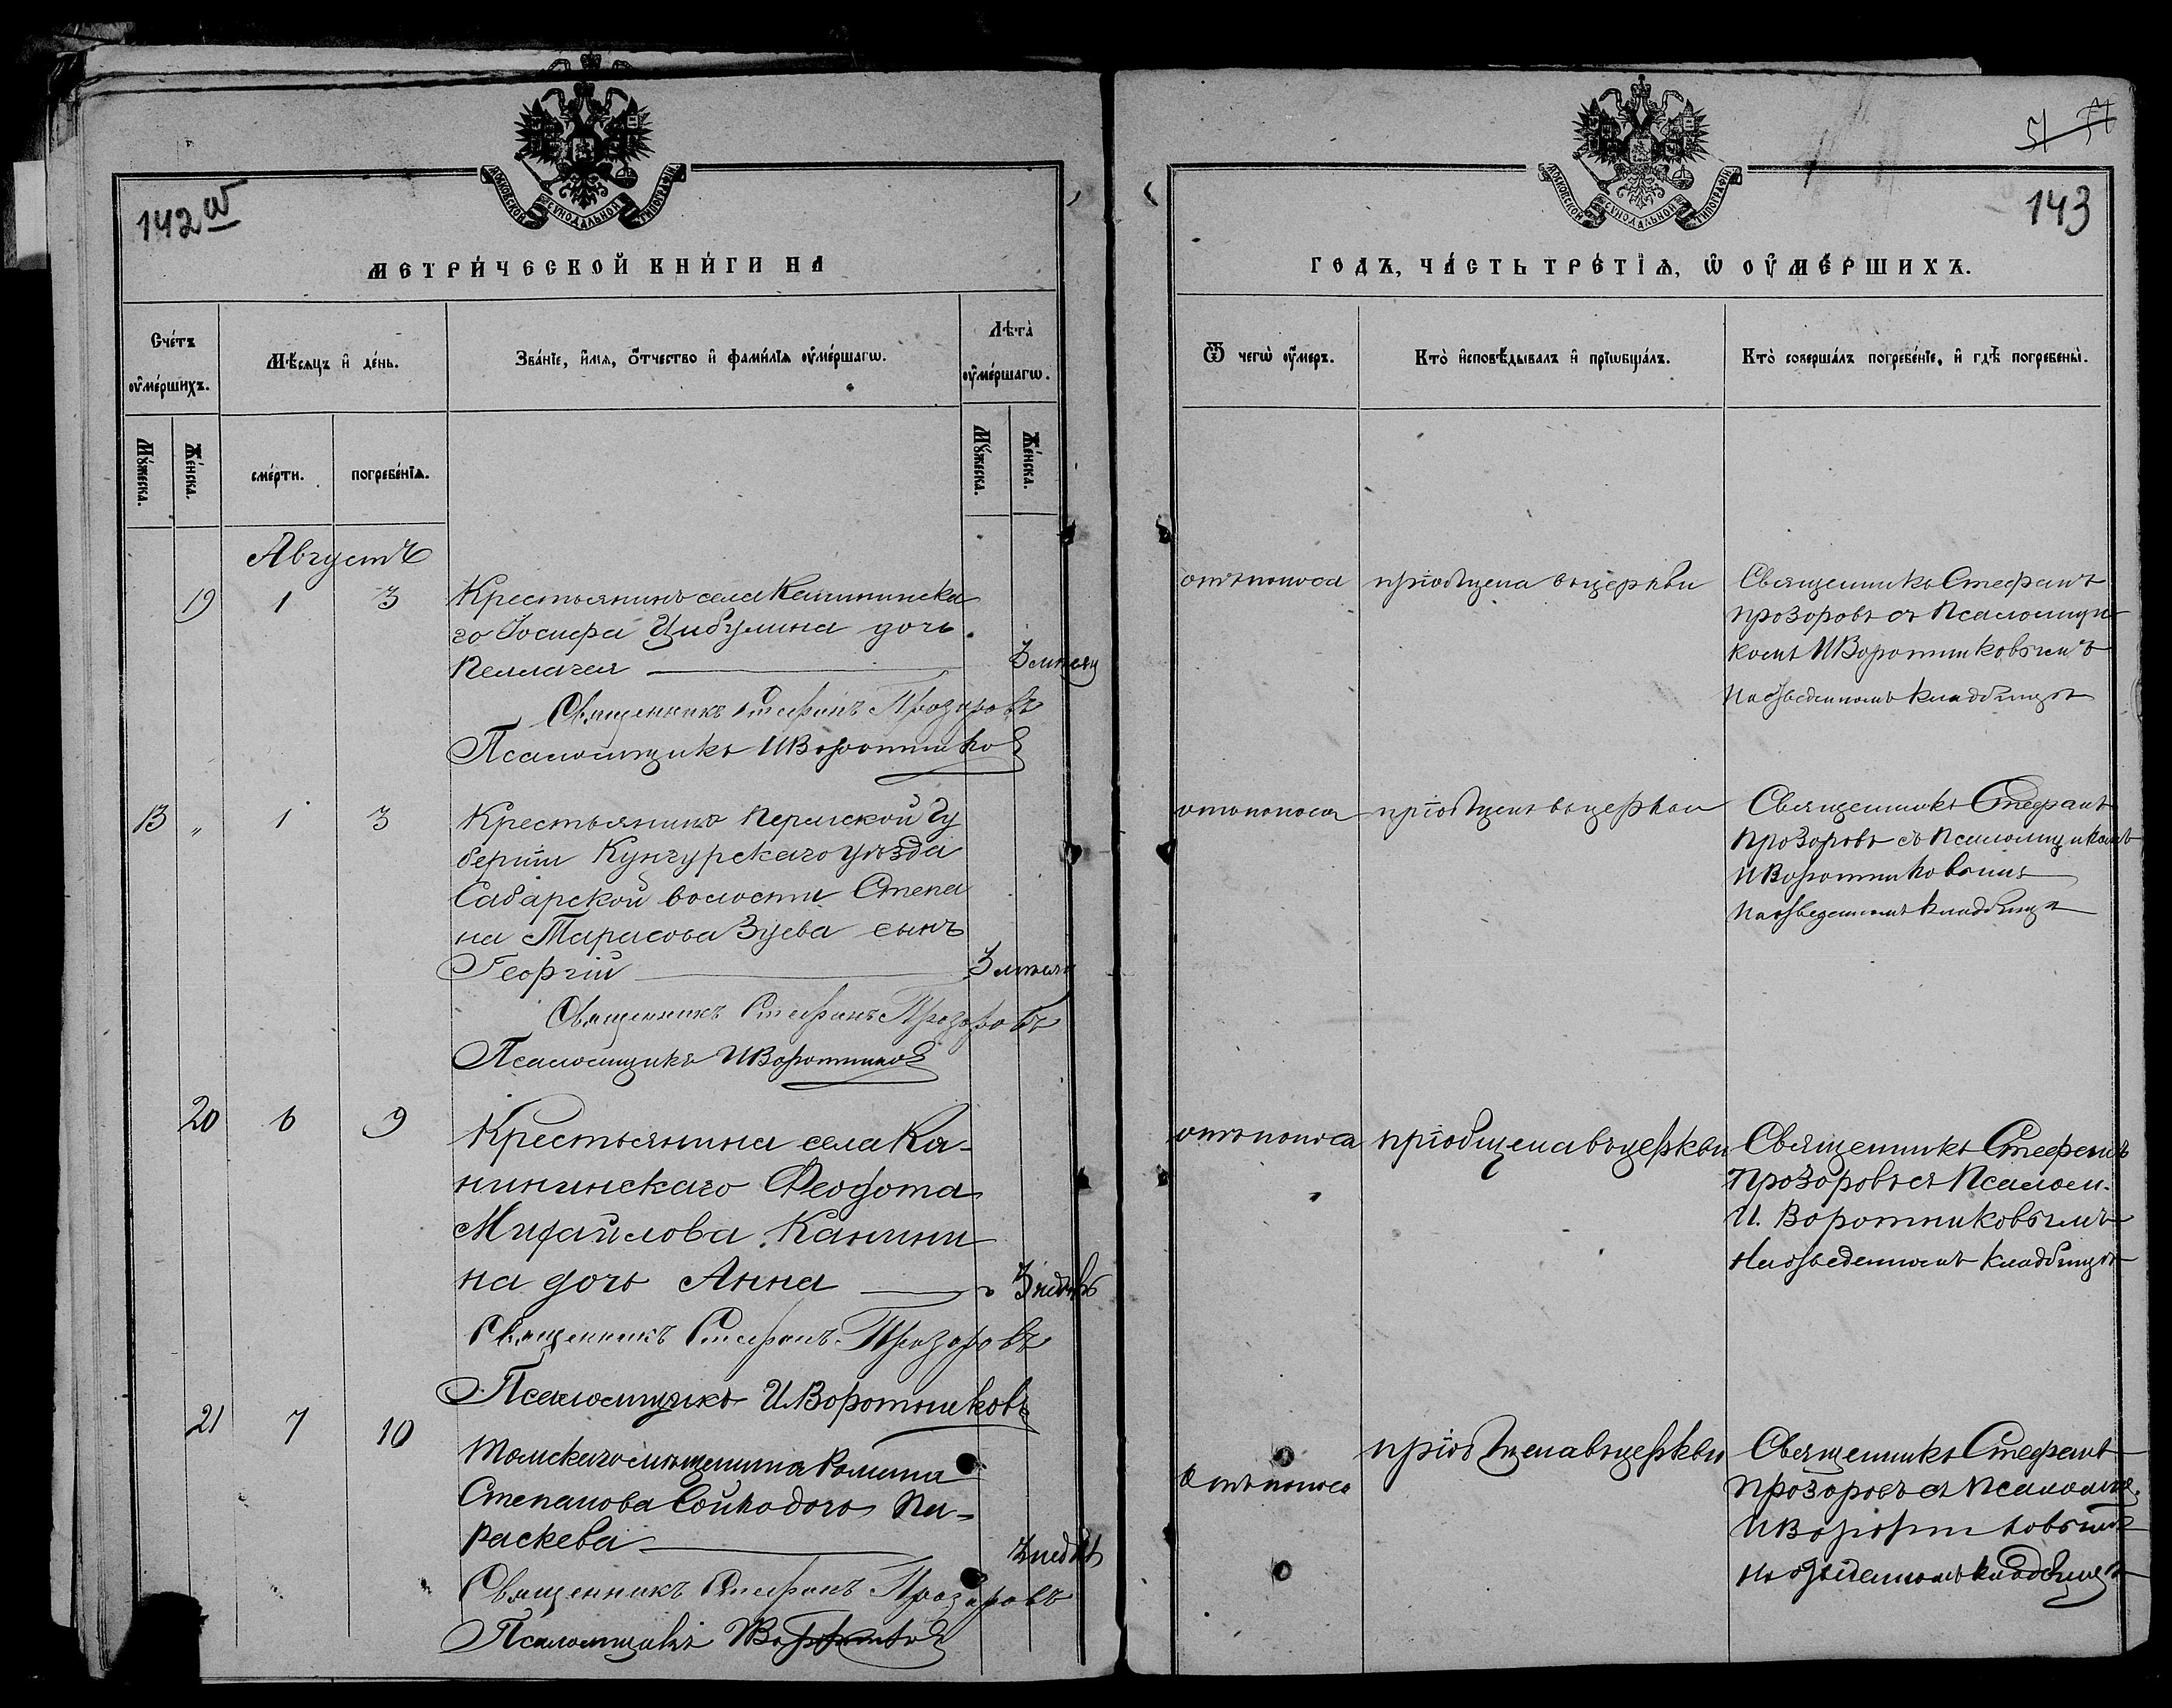 МОСКОВСКОЙ СѴНОДАЛЬНОЙ ТИПОГРАФІИ
142 об
МЕТРИ́ЧЕСКОЙ КНИ́ГИ НА
Сче́тъ оу҆ме́ршихъ.
Мѣ́сяцъ и҆ де́нь.
Зва́нїе, и҆́мѧ, ѻ҆́тчество и҆ фами́лїѧ оу҆ме́ршагѡ.
Лѣта̀ оу҆ме́ршагѡ.
Мꙋ́жеска.
Же́нска.
сме́рти.
погребе́нїѧ.
Мꙋ́жеска.
Же́нска.
Августъ
19 1 3 Крестьянинъ села
го Іосифа Цибулина дочь
Пеллагея 3 мѣсяц
Священникъ Стефанъ Прозоровъ
Псаломщикъ И Воротников
13 " 1 3 Крестьянина Пермской Гу
берніи Кунгурскаго уѣзда
Сабарской волости Степа
на Тарасова Зуева сынъ
Георгій 3 мѣсяц
Священникъ Стефанъ Прозоровъ
Псаломщикъ И Воротников
20 6 9 Крестьянина села Ка-
нинскаго Феодота
Михайлова Канини
на дочь Анна " 3 недѣль
Священникъ Стефанъ Прозоровъ
Псаломщикъ И Воротниковъ
21 7 10 Томскаго мѣщанина Романа
Степанова дочь Па-
раскева 3 недѣл
Священникъ Стефанъ Прозоровъ
Псаломщикъ И Воротников
МОСКОВСКОЙ СѴНОДАЛЬНОЙ ТИПОГРАФІИ
143
ГОДЪ, ЧА́СТЬ ТРЕ́ТЇѦ, Ѡ҆ ОУ҆МЕ́РШИХЪ.
Ѿ чегѡ̀ оу҆́меръ.
Кто̀ и҆сповѣ́дывалъ и҆ прїѡбща́лъ.
Кто̀ соверша́лъ погребе́нїе, и҆ гдѣ̀ погребены̀.
отъ поноса пріобщена въ церкви Священникъ Стефанъ
Прозоровъ съ Псаломщи
комъ И Воротниковымъ
На отведенномъ кладбищѣ
отъ поноса пріобщенъ въ церкви Священникъ Стефанъ
Прозоровъ съ Псаломщикомъ
И Воротниковымъ
На отведенномъ кладбищѣ
отъ поноса пріобщена въ церкви Священникъ Стефанъ
Прозоровъ съ Псалом.
И. Воротниковымъ
На отведенномъ кладбищѣ
отъ поноса пріобщена въ церкви Священникъ Стефанъ
Прозоровъ съ Псаломщ.
И Воротниковымъ
на отведенномъ кладбищѣ